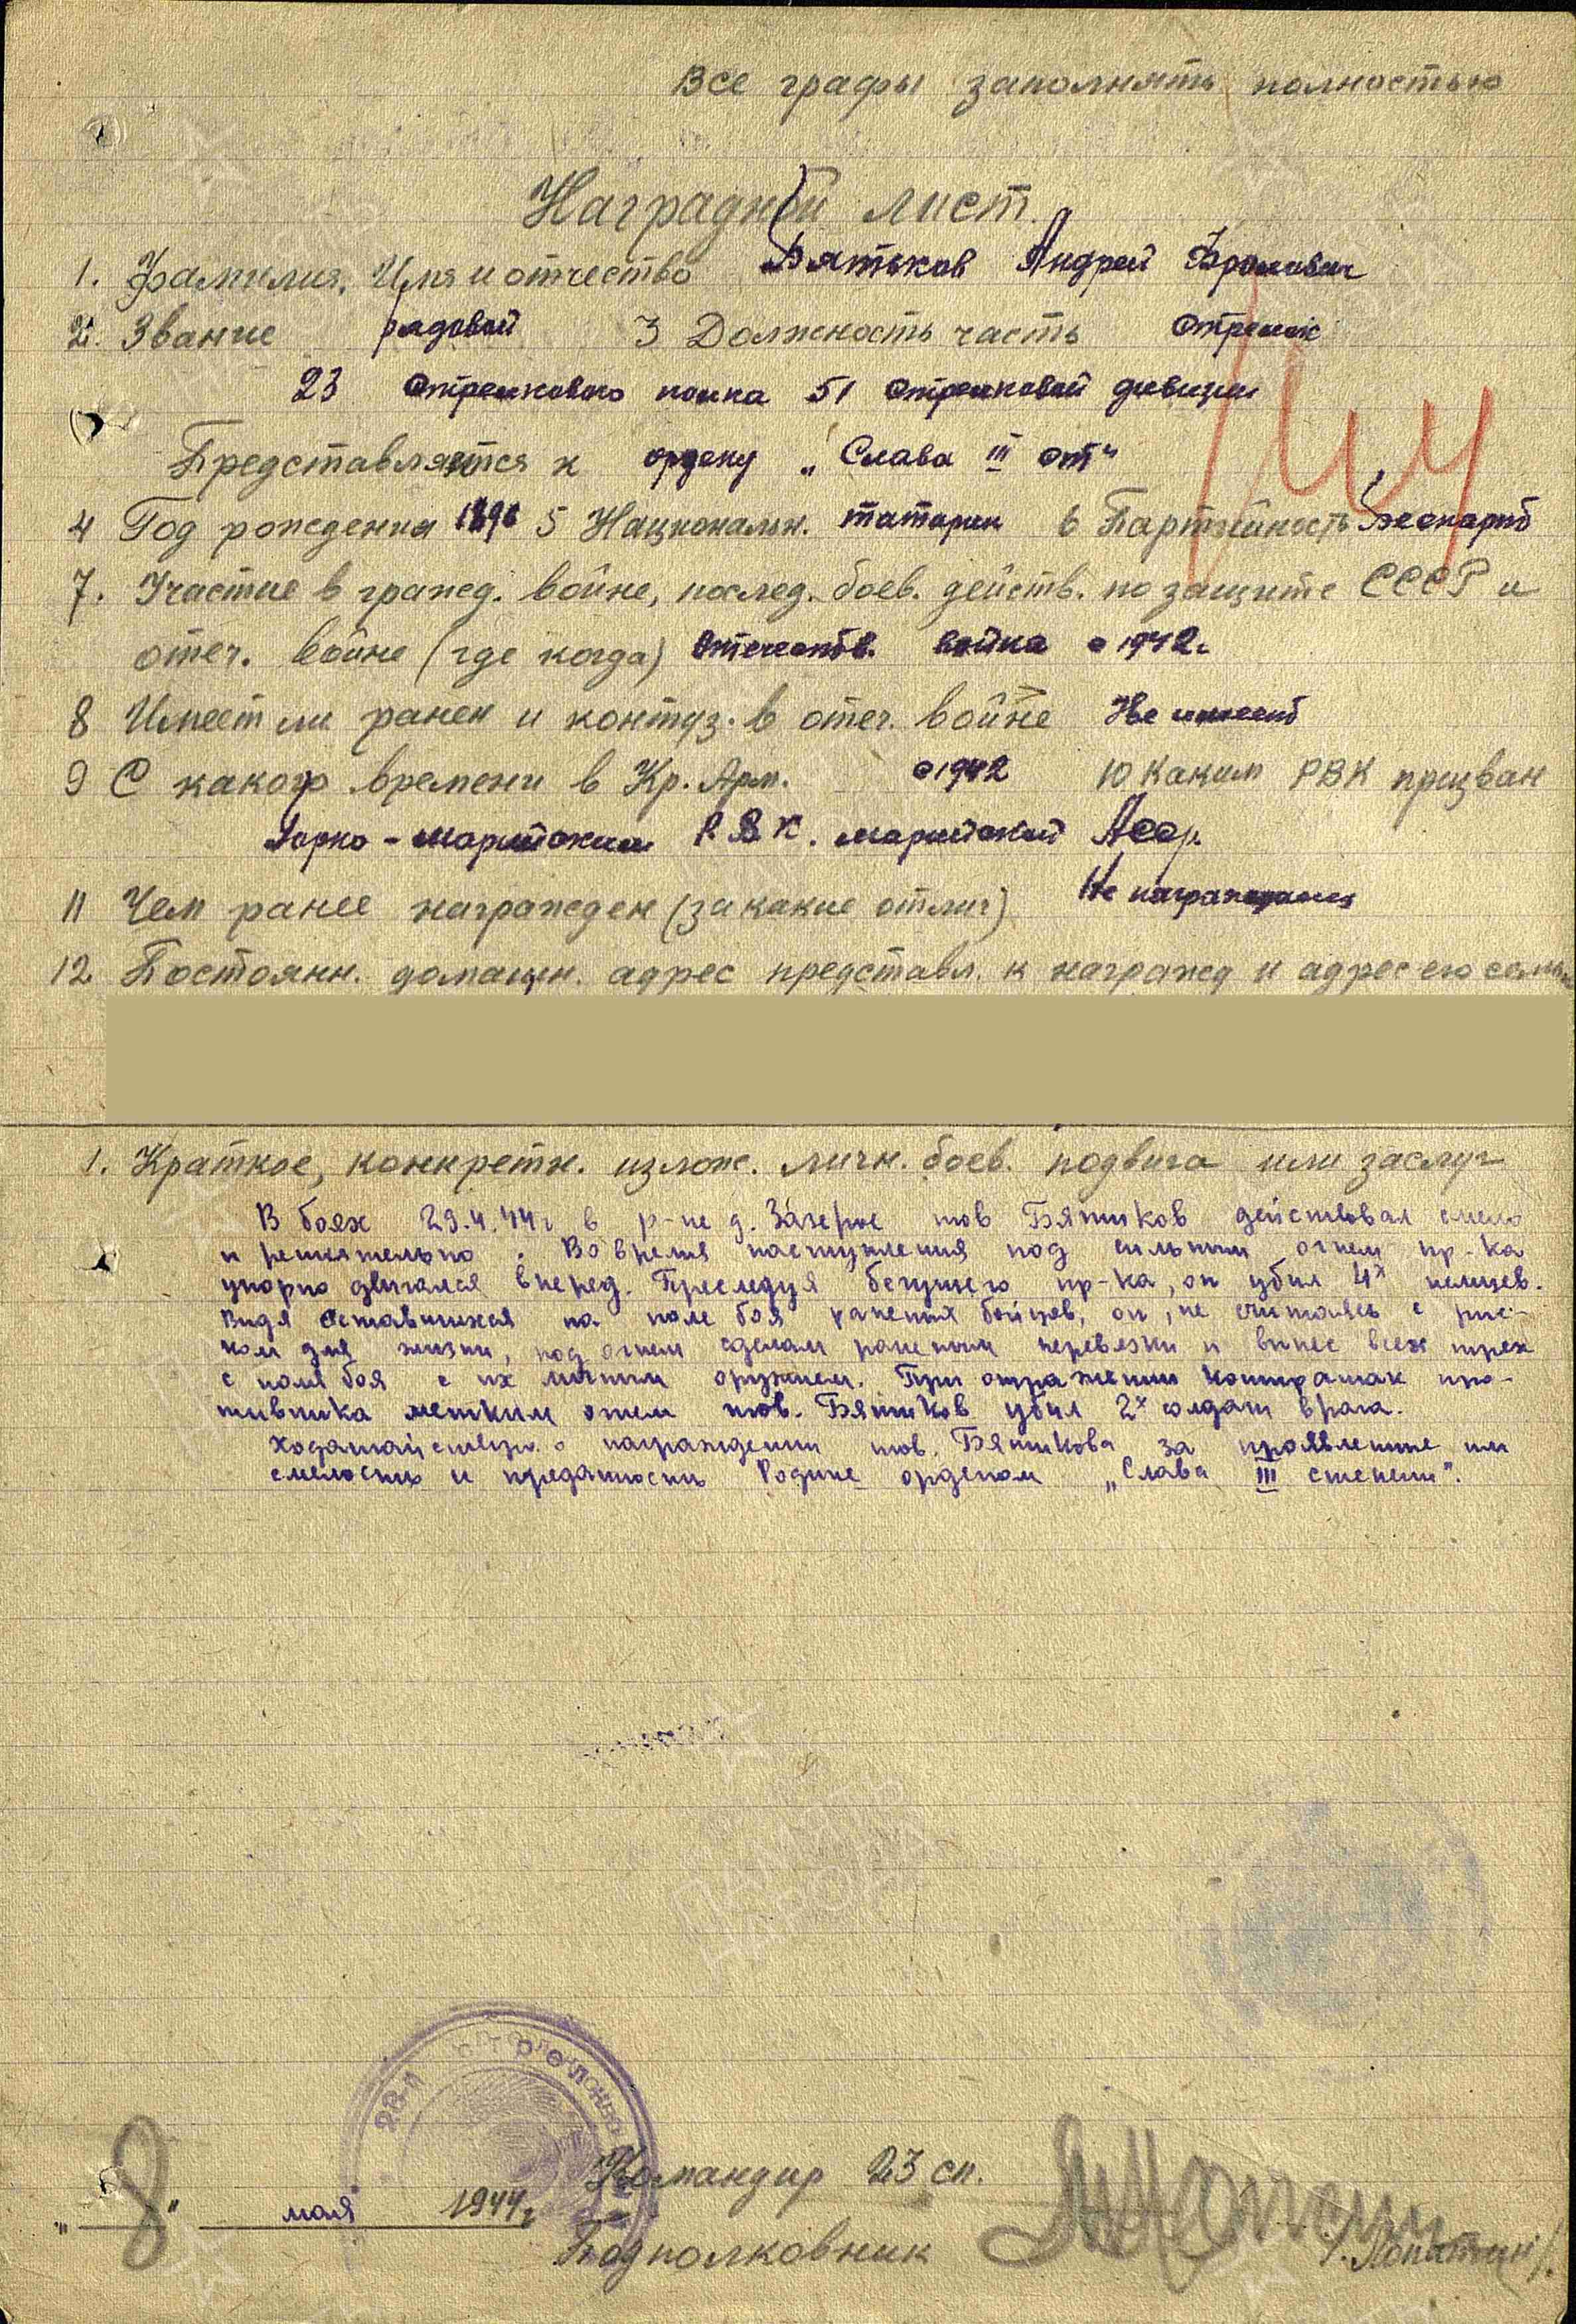 Все графы заполнять полностью
Наградной лист.
1. Фамилия, Имя и отчество Бятиков Андрей Фролович
2. Звание рядовой 3 Должность часть стрелок
23 стрелкового полка 51 стрелковой дивизии
Представляется к ордену „Слава III ст“
4 Год рождения 1898 5 Националън. татарин 6 Партийность Беспарт
7. Участие в гражд. войне, послед. боев. действ. по защите СССР и
отеч. войне (где когда) Отечеств. война с 1942г
8 Имеет ли ранен и контуз. в отеч. войне Не имеет
9 С какого времени в Кр. Арм. с 1942 10 Каким РВК призван
Горно-Марийским Р.В.К. Марийский Асср.
11 Чем ранее награжден (за какие отлич) Не награждался
12 Постоянн. домашн. адрес представл. к награжд и адрес его семьи
1. Краткое, конкретн. излож. личн. боев. подвига или заслуг
В боях 29.4.44г в р-не д. Заерное тов Бятиков действовал смело
и решительно. Во время наступления под сильным огнем пр-ка
упорно двигался вперед. Преследуя бегущего пр-ка, он убил 4х немцев.
Видя оставшихся на поле боя раненых бойцов, он, не считаясь с рис-
ком для жизни, под огнем сделал раненым перевязки и вынес всех трех
с поля боя с их личным оружием. При отражении контратак про-
тивника метким огнем тов. Бятиков убил 2х солдат врага.
Ходатайствую о награждении тов. Бятикова за проявленные им
смелость и преданность Родине орденом „Слава III степени".
ПАМЯТЬ
НАРОДА
23-й стрелковый
Командир 23 сп.
„8" мая 1944г
Подполковник /Лопатин/.